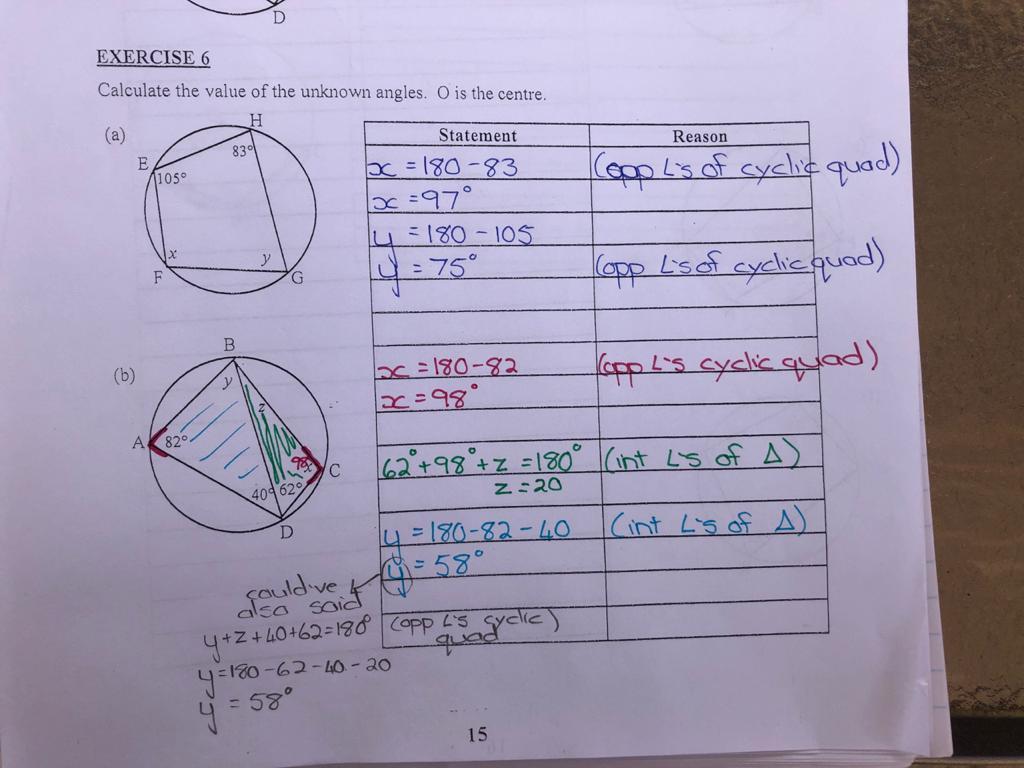 D
EXERCISE 6
Calculate the value of the unknown angles. O is the centre.
(a)
H
E
83°
105°
x
y
F
G
Statement Reason
x = 180 - 83 (opp L's of cyclic quad)
x = 97°
y = 180 - 105
y = 75° (opp L's of cyclic quad)
(b)
B
y
z
A
82°
98°
x
C
40° 62°
D
x = 180 - 82 (opp L's cyclic quad)
x = 98°
62° + 98° + z = 180° (int L's of Δ)
z = 20
y = 180 - 82 - 40 (int L's of Δ)
y = 58°
could've
also said
y + z + 40 + 62 = 180°
y = 180 - 62 - 40 - 20
y = 58°
(opp L's cyclic)
quad
15